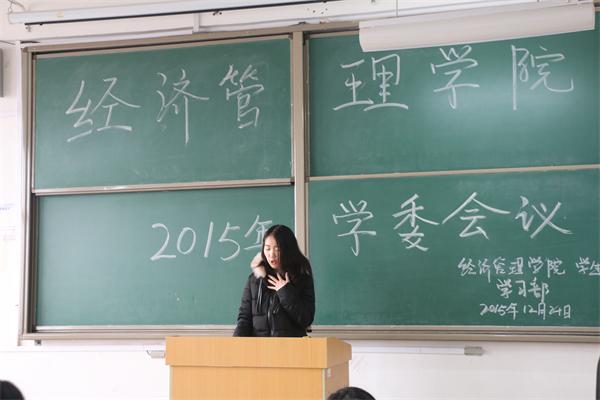 经济管理学院
2015年学委会议
经济管理学院 学生
学习部
2015年12月24日